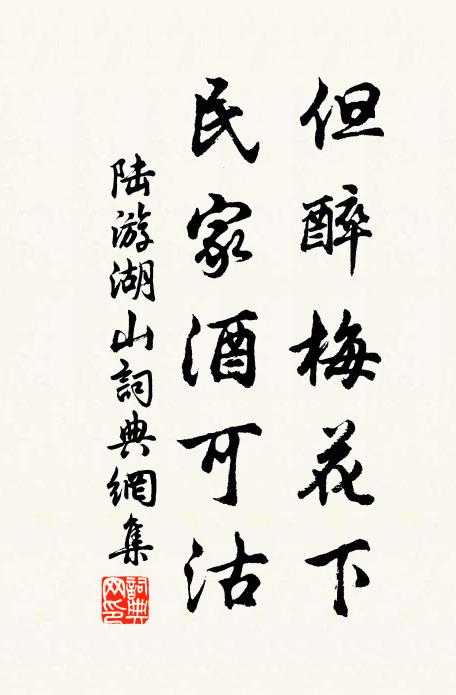 但醉梅花下
民家酒可沽
陆游湖山詞典網集
詞典网印